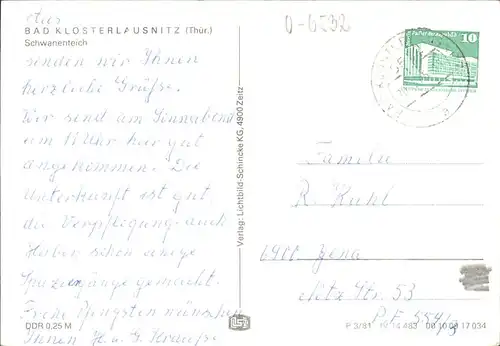 Aus
BAD KLOSTERLAUSNITZ (Thür.)
Schwanenteich
senden wir Ihnen
herzliche Grüße.
Wir sind am Sonnabend
um 11 Uhr hier gut
angekommen. Die
Unterkunft ist gut
die Verpflegung auch
Haben schon einige
Spaziergänge gemacht.
Frohe Pfingsten wünschen
Ihnen H. u. G. Krauße
DDR 0,25 M
Verlag: Lichtbild-Schincke KG, 4900 Zeitz
0-6532
10
Familie
R. Kuhl
6900 Jena
Str. 53
P.F. 554/
P 3/81 IV 14 483 01 10 09 17 034